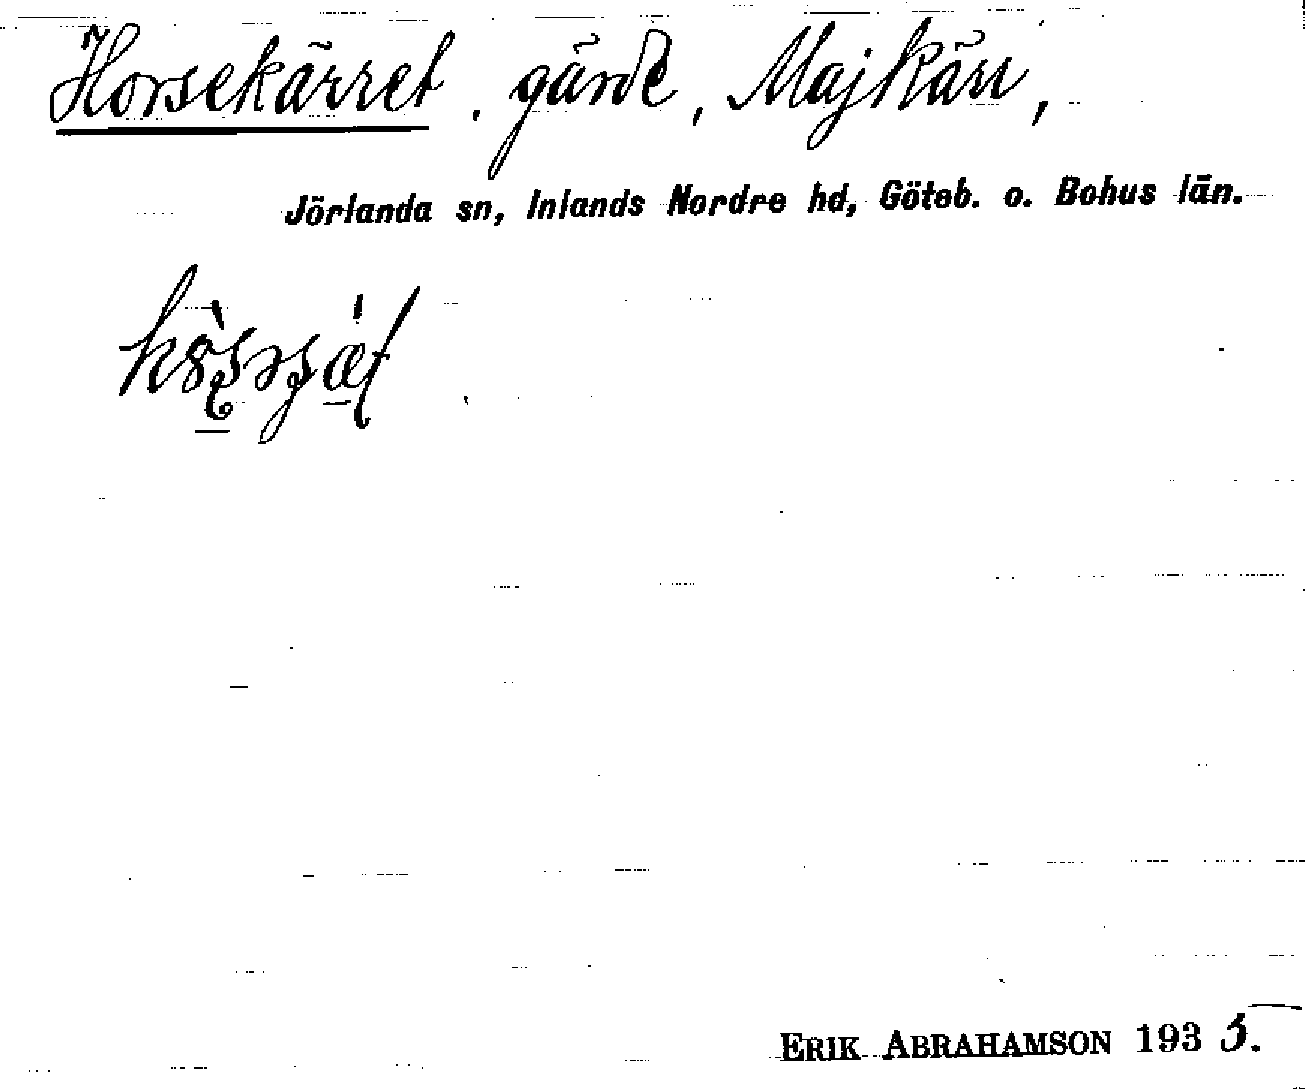 Horsekärret, gärde, Majkärr,
Jörlanda sn, Inlands Nordre hd, Göteb. o. Bohus län.
ERIK ABRAHAMSON 1935.